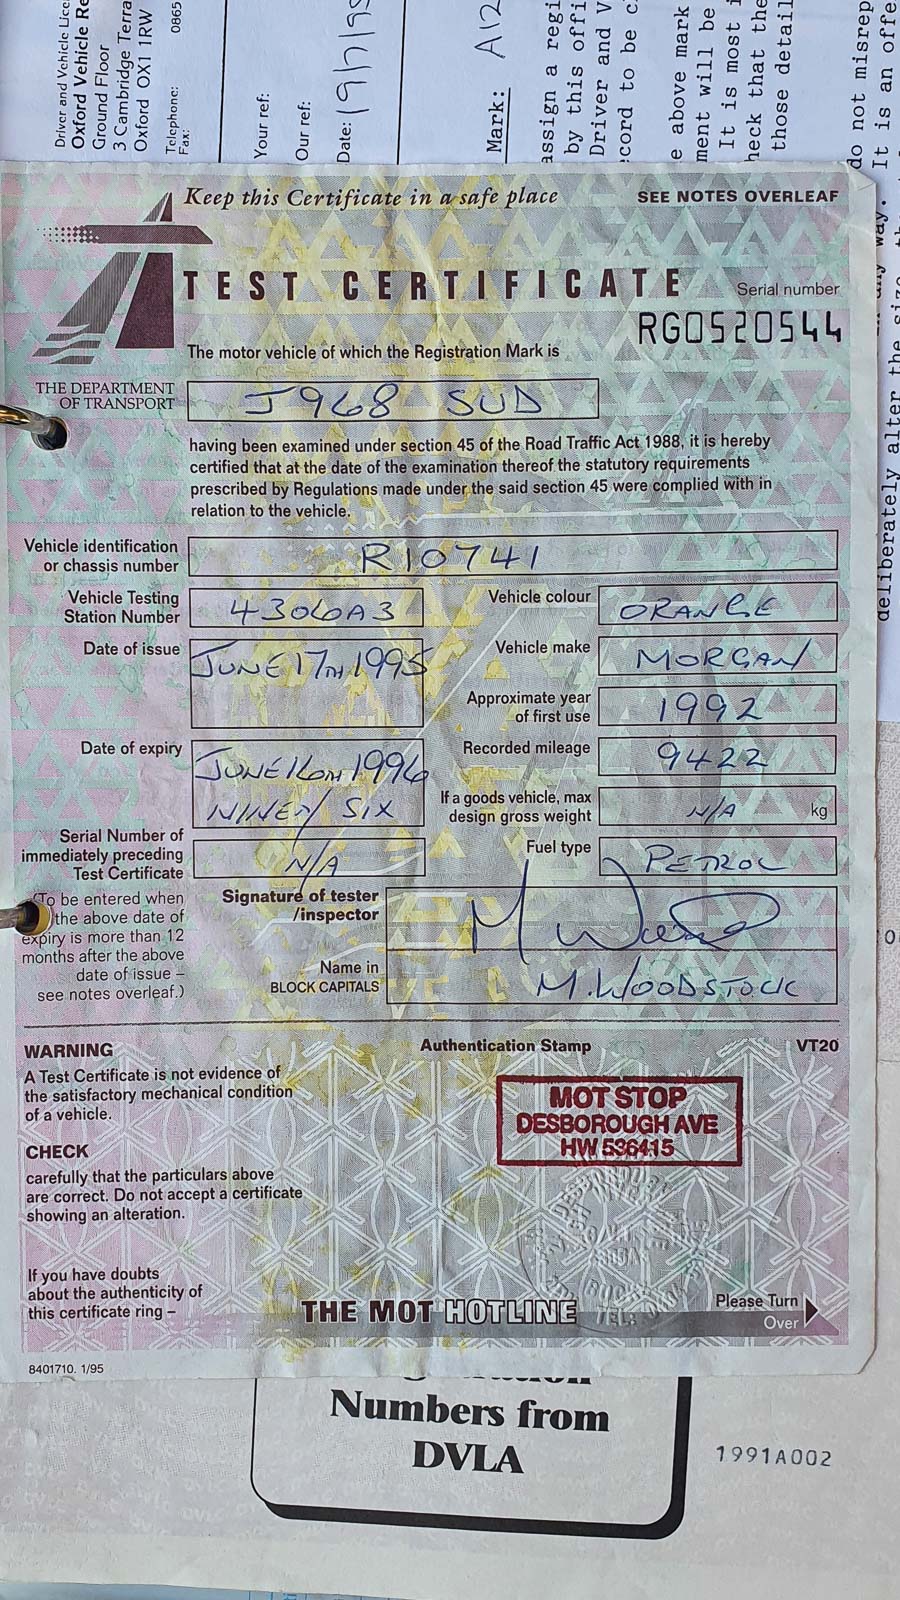 Driver and Vehicle Lice
Oxford Vehicle Re
Ground Floor
3 Cambridge Terra
Oxford OX1 1RW
Telephone: 0865
Fax:
Your ref:
Our ref:
Date: 19/7/95
Mark: A12
assign a regi
by this offi
Driver and V
cord to be c
e above mark
ment will be
It is most i
heck that the
those detail
do not misrep
It is an offe
deliberately alter the size
Keep this Certificate in a safe place
SEE NOTES OVERLEAF
TEST CERTIFICATE
Serial number
RG0520544
The motor vehicle of which the Registration Mark is
THE DEPARTMENT
OF TRANSPORT
J968 SUD
having been examined under section 45 of the Road Traffic Act 1988, it is hereby
certified that at the date of the examination thereof the statutory requirements
prescribed by Regulations made under the said section 45 were complied with in
relation to the vehicle.
Vehicle identification
or chassis number
R10741
Vehicle Testing
Station Number
4306A3
Vehicle colour
ORANGE
Date of issue
JUNE 17TH 1995
Vehicle make
MORGAN
Approximate year
of first use
1992
Date of expiry
JUNE 16TH 1996
NINETY SIX
Recorded mileage
9422
If a goods vehicle, max
design gross weight
N/A kg
Serial Number of
immediately preceding
Test Certificate
N/A
Fuel type
PETROL
(To be entered when
the above date of
expiry is more than 12
months after the above
date of issue –
see notes overleaf.)
Signature of tester
/inspector
Name in
BLOCK CAPITALS
M. WOODSTOCK
WARNING
A Test Certificate is not evidence of
the satisfactory mechanical condition
of a vehicle.
Authentication Stamp
VT20
MOT STOP
DESBOROUGH AVE
HW 536415
CHECK
carefully that the particulars above
are correct. Do not accept a certificate
showing an alteration.
If you have doubts
about the authenticity of
this certificate ring –
THE MOT HOTLINE
Please Turn
Over
8401710. 1/95
Numbers from
DVLA
1991A002